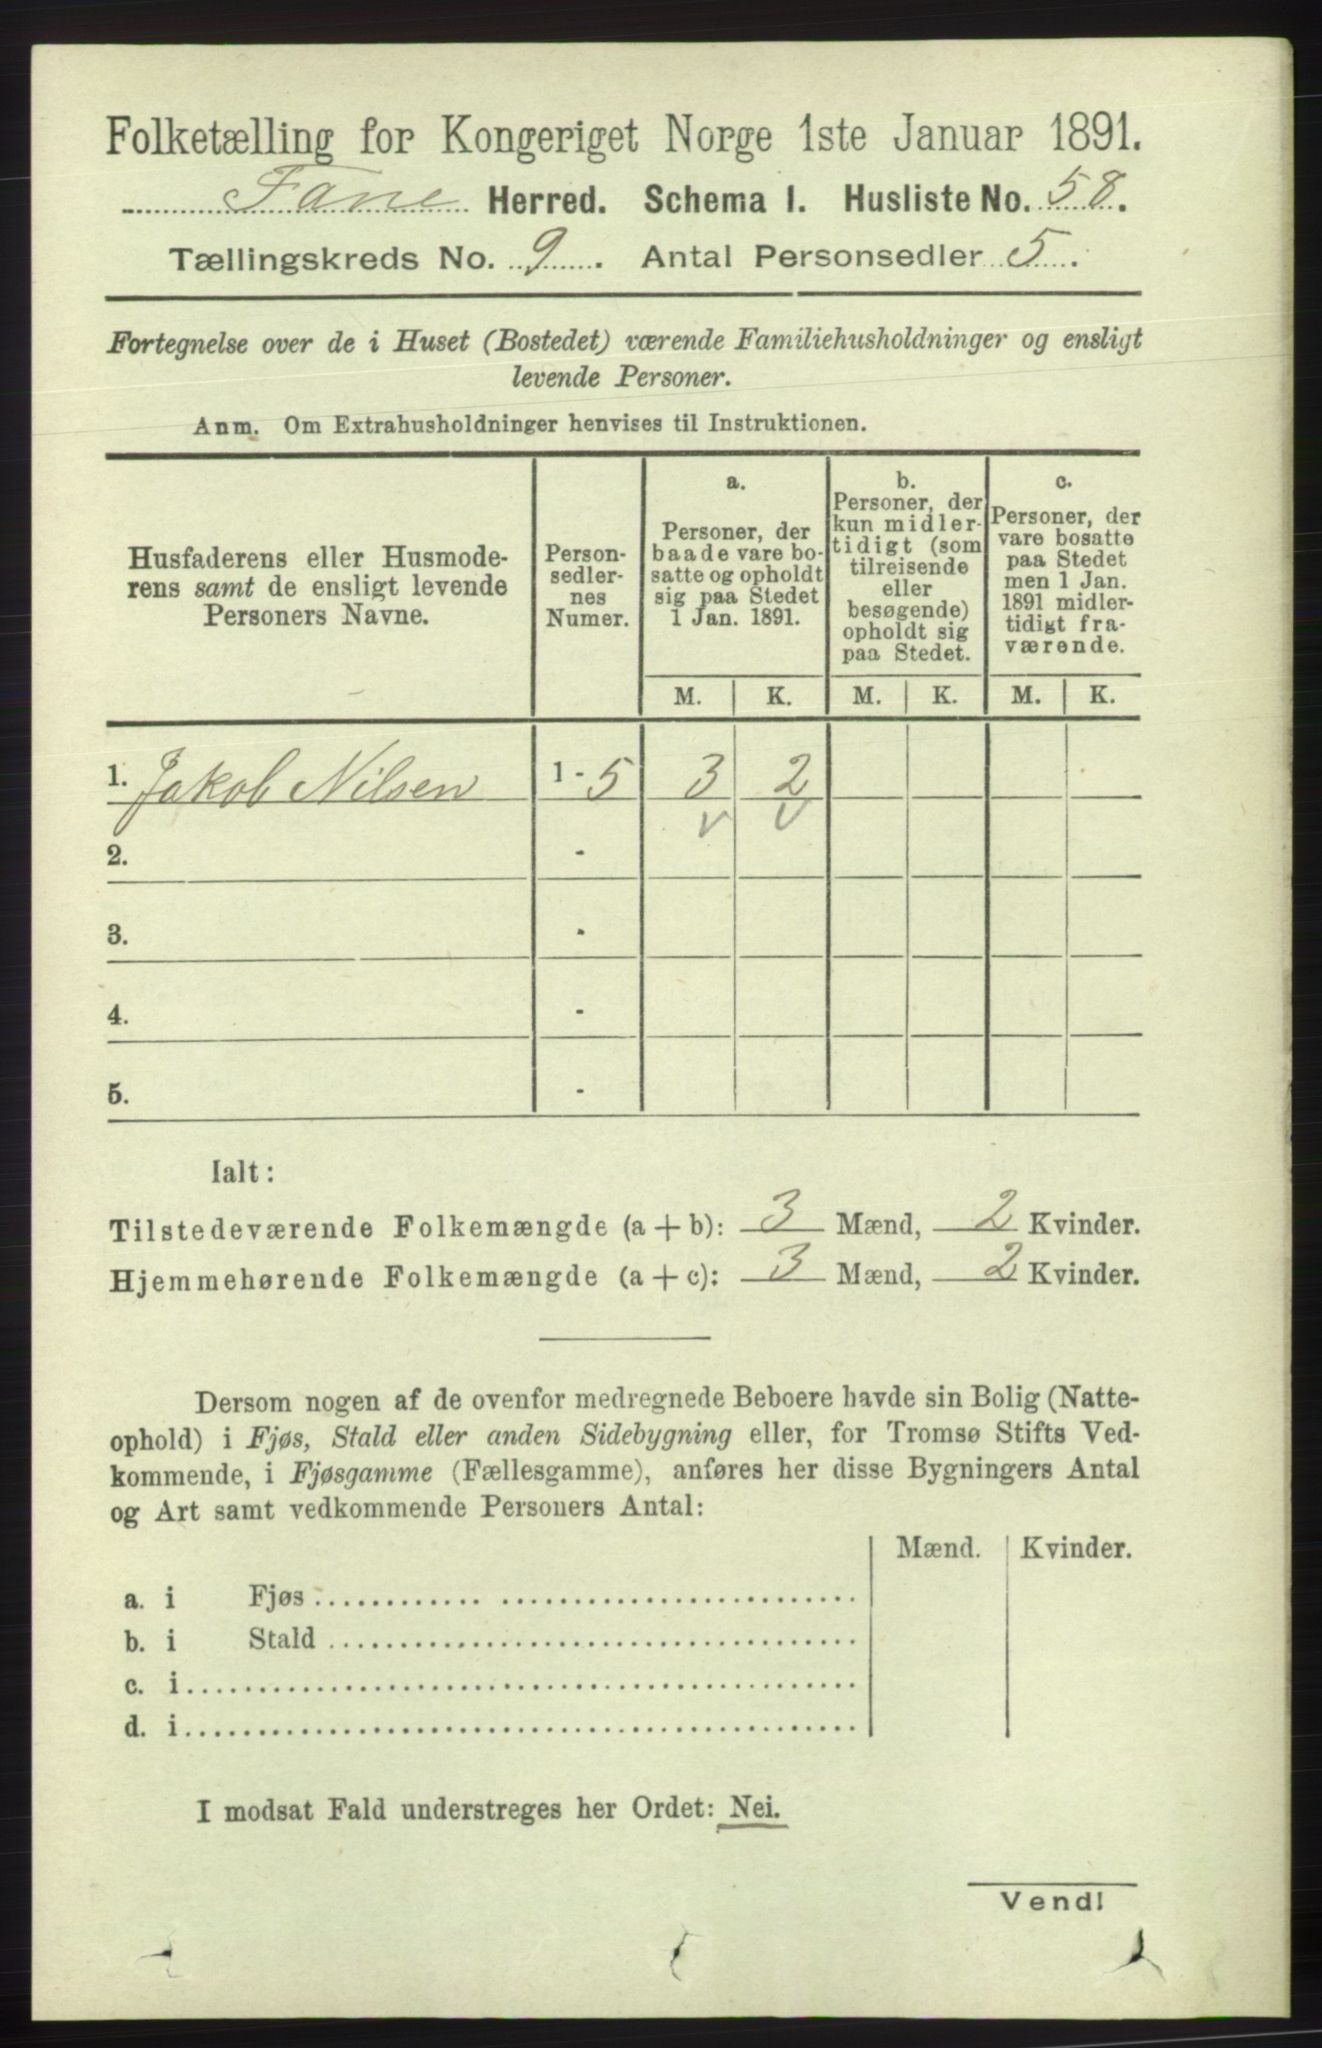 Folketælling for Kongeriget Norge 1ste Januar 1891.
Fane Herred. Schema I. Husliste No. 58.
Tællingskreds No. 9. Antal Personsedler 5.
Fortegnelse over de i Huset (Bostedet) værende Familiehusholdninger og ensligt
levende Personer.
Anm. Om Extrahusholdninger henvises til Instruktionen.
Husfaderens eller Husmode-
rens samt de ensligt levende
Personers Navne.
Person-
sedler-
nes
Numer.
a.
Personer, der
baade vare bo-
satte og opholdt
sig paa Stedet
1 Jan. 1891.
b.
Personer, der
kun midler-
tidigt (som
tilreisende
eller
besøgende)
opholdt sig
paa Stedet.
c.
Personer, der
vare bosatte
paa Stedet
men 1 Jan.
1891 midler-
tidigt fra-
værende.
M. K. M. K. M. K.
1. Jakob Nilsen 1 - 5 3 2
2. -
3. -
4. -
5. -
Ialt:
Tilstedeværende Folkemængde (a + b): 3 Mænd, 2 Kvinder.
Hjemmehørende Folkemængde (a + c): 3 Mænd, 2 Kvinder.
Dersom nogen af de ovenfor medregnede Beboere havde sin Bolig (Natte-
ophold) i Fjøs, Stald eller anden Sidebygning eller, for Tromsø Stifts Ved-
kommende, i Fjøsgamme (Fællesgamme), anføres her disse Bygningers Antal
og Art samt vedkommende Personers Antal:
Mænd. Kvinder.
a. i Fjøs
b. i Stald
c. i
d. i
I modsat Fald understreges her Ordet: Nei.
Vend!